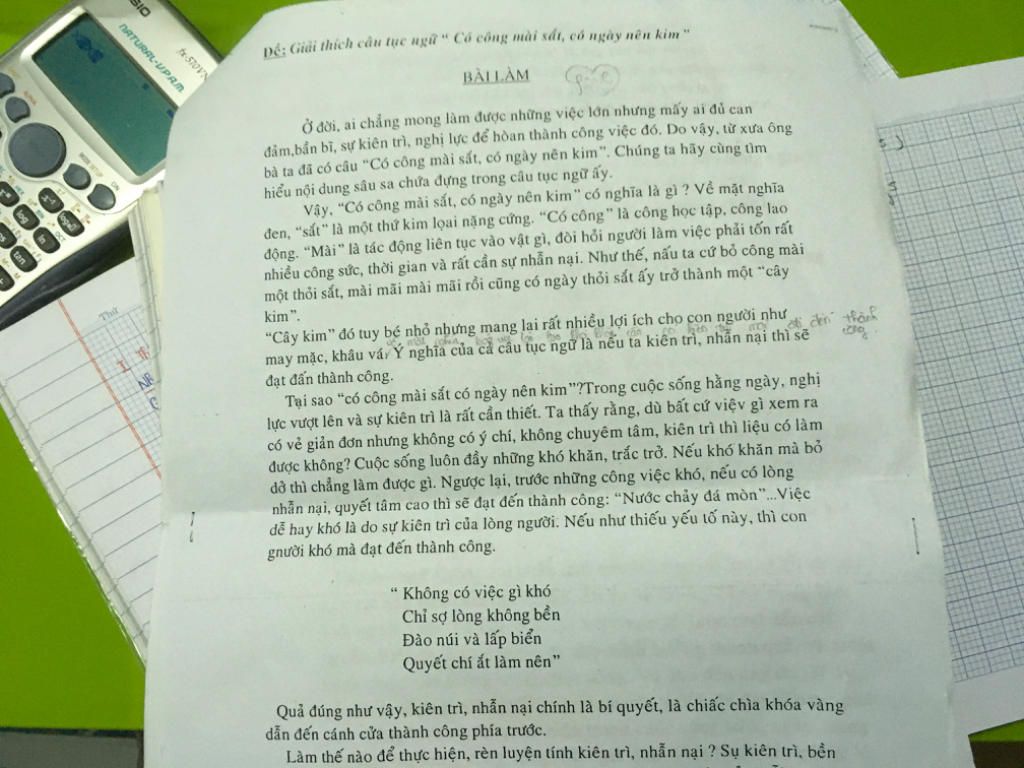 CASIO
NATURAL-V.P.A.M.
Đề: Giải thích câu tục ngữ " Có công mài sắt, có ngày nên kim "
BÀI LÀM
Ở đời, ai chẳng mong làm được những việc lớn nhưng mấy ai đủ can
đảm,bền bĩ, sự kiên trì, nghị lực để hòan thành công việc đó. Do vậy, từ xưa ông
bà ta đã có câu "Có công mài sắt, có ngày nên kim". Chúng ta hãy cùng tìm
hiểu nội dung sâu sa chứa đựng trong câu tục ngữ ấy.
Vậy, "Có công mài sắt, có ngày nên kim" có nghĩa là gì ? Về mặt nghĩa
đen, "sắt" là một thứ kim lọai nặng cứng. "Có công" là công học tập, công lao
động. "Mài" là tác động liên tục vào vật gì, đòi hỏi người làm việc phải tốn rất
nhiều công sức, thời gian và rất cần sự nhẫn nại. Như thế, nấu ta cứ bỏ công mài
một thỏi sắt, mài mãi mài mãi rồi cũng có ngày thỏi sắt ấy trở thành một "cây
kim".
"Cây kim" đó tuy bé nhỏ nhưng mang lại rất nhiều lợi ích cho con người như
may mặc, khâu vá. Ý nghĩa của cả câu tục ngữ là nếu ta kiên trì, nhẫn nại thì sẽ
đạt đấn thành công.
Tại sao "có công mài sắt có ngày nên kim"?Trong cuộc sống hằng ngày, nghị
lực vượt lên và sự kiên trì là rất cần thiết. Ta thấy rằng, dù bất cứ việv gì xem ra
có vẻ giản đơn nhưng không có ý chí, không chuyêm tâm, kiên trì thì liệu có làm
được không? Cuộc sống luôn đầy những khó khăn, trắc trở. Nếu khó khăn mà bỏ
dở thì chẳng làm được gì. Ngược lại, trước những công việc khó, nếu có lòng
nhẫn nại, quyết tâm cao thì sẽ đạt đến thành công: "Nước chảy đá mòn"...Việc
dễ hay khó là do sự kiên trì của lòng người. Nếu như thiếu yếu tố này, thì con
gnười khó mà đạt đến thành công.
" Không có việc gì khó
Chỉ sợ lòng không bền
Đào núi và lấp biển
Quyết chí ắt làm nên"
Quả đúng như vậy, kiên trì, nhẫn nại chính là bí quyết, là chiấc chìa khóa vàng
dẫn đến cánh cửa thành công phía trước.
Làm thế nào để thực hiện, rèn luyện tính kiên trì, nhẫn nại ? Sụ kiên trì, bền